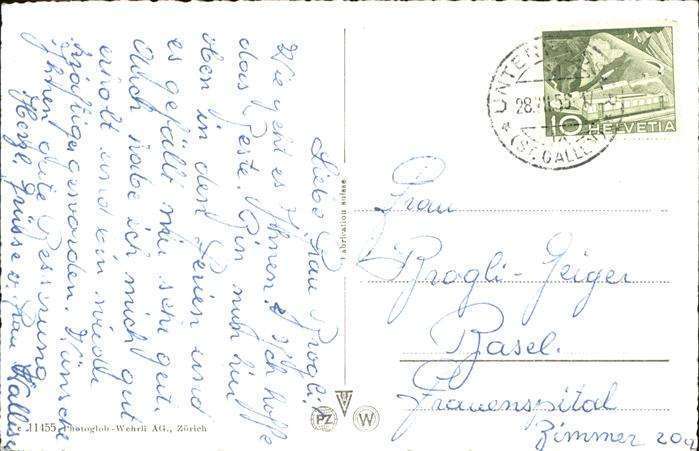 Liebe Frau Brogli!
Wie geht es Ihnen? Ich hoffe
das Beste. Bin nun hier
oben in den Ferien und
es gefällt mir sehr gut.
Auch habe ich mich gut
erholt und bin wieder
kräftiger geworden. Wünsche
Ihnen gute Besserung
Herzl. Grüsse v. Frau
Fabrication suisse
11455 Photoglob-Wehrli AG., Zürich
PZ
W
UNTER
28.
(ST. GALLEN)
10 HELVETIA
Frau
Brogli-Geiger
Basel.
Frauenspital
Zimmer 209